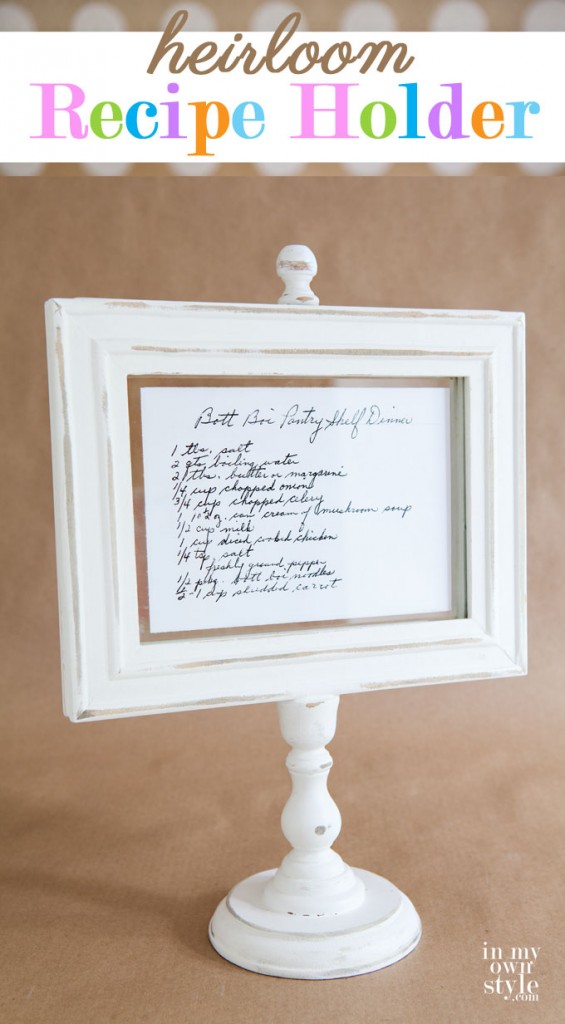 heirloom
Recipe Holder
Bott Boi Pantry Shelf Dinner
1 tbs. salt
2 qts. boiling water
2 tbs. butter or margarine
1/4 cup chopped onion
3/4 cup chopped celery
1 10 1/2 oz. can cream of mushroom soup
1/2 cup milk
1 cup diced cooked chicken
1/4 tsp salt
freshly ground pepper
1/2 pkg. bott boi noodles
1/2-1 cup shredded carrot
in my
own
style
.com